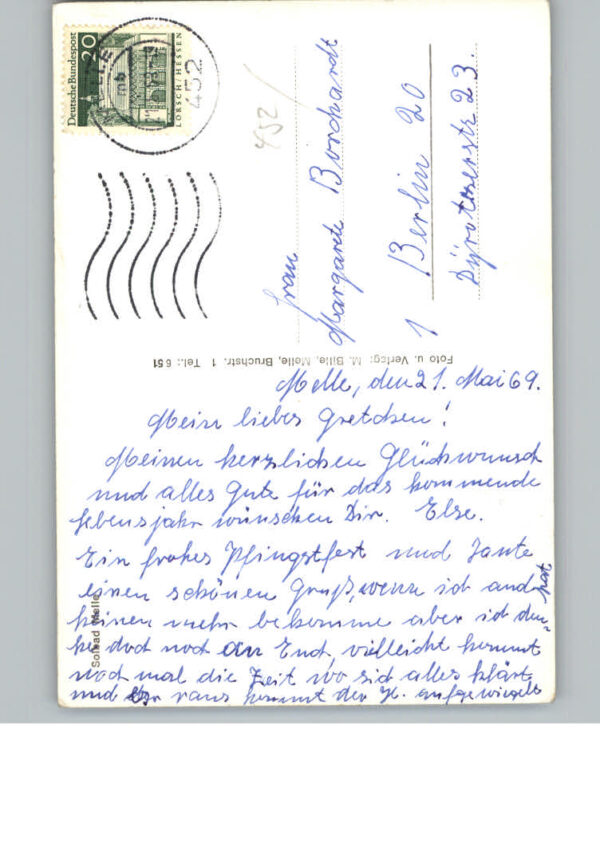 Deutsche Bundespost
20
LORSCH/HESSEN
MELLE
mb
452
452
Frau
Margarete Borchardt
1 Berlin 20
Pyrotzerstr 23.
Foto u. Verlag: M. Bille, Melle, Bruchstr. 1 Tel.: 6 51
Solbad Melle
Melle, den 21. Mai 69.
Mein liebes Gretchen!
Meinen herzlichen Glückwunsch
und alles Gute für das kommende
Lebensjahr wünschen Dir. Else.
Ein frohes Pfingstfest und Tante
einen schönen Gruß, wenn ich auch
keinen mehr bekomme aber ich den-
ke doch noch an End, vielleicht kommt
noch mal die Zeit wo sich alles klärt
und raus kommt der H. aufgewiegelt
hat